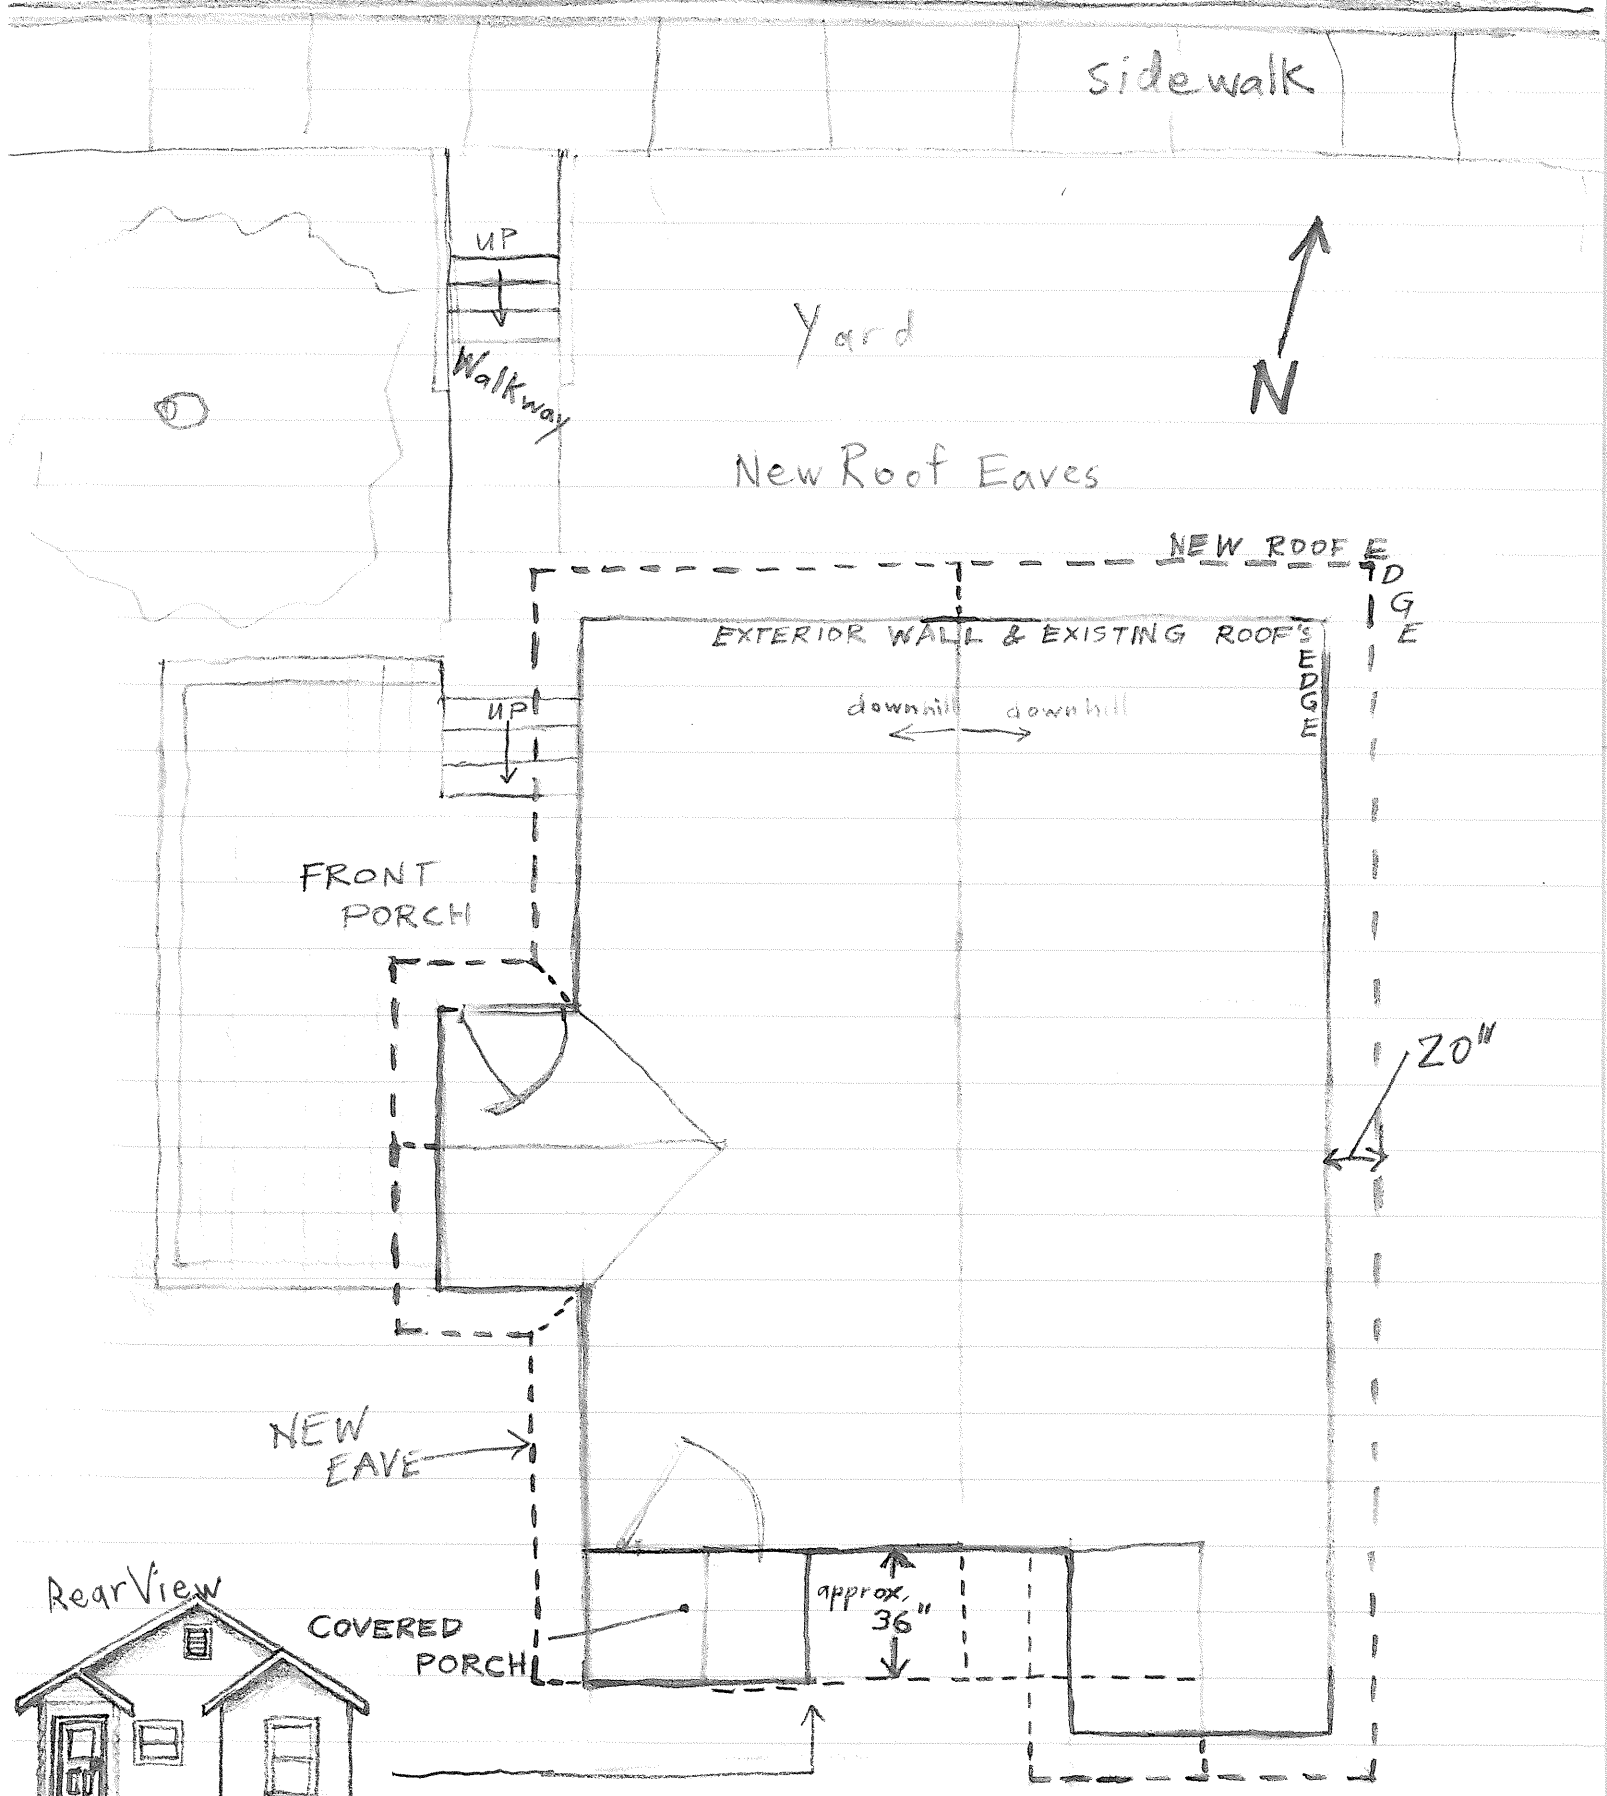 sidewalk
UP
Walkway
Yard
N
New Roof Eaves
NEW ROOF EDGE
EXTERIOR WALL & EXISTING ROOF'S EDGE
downhill downhill
UP
FRONT
PORCH
20"
NEW
EAVE
approx.
36"
Rear View
COVERED
PORCH